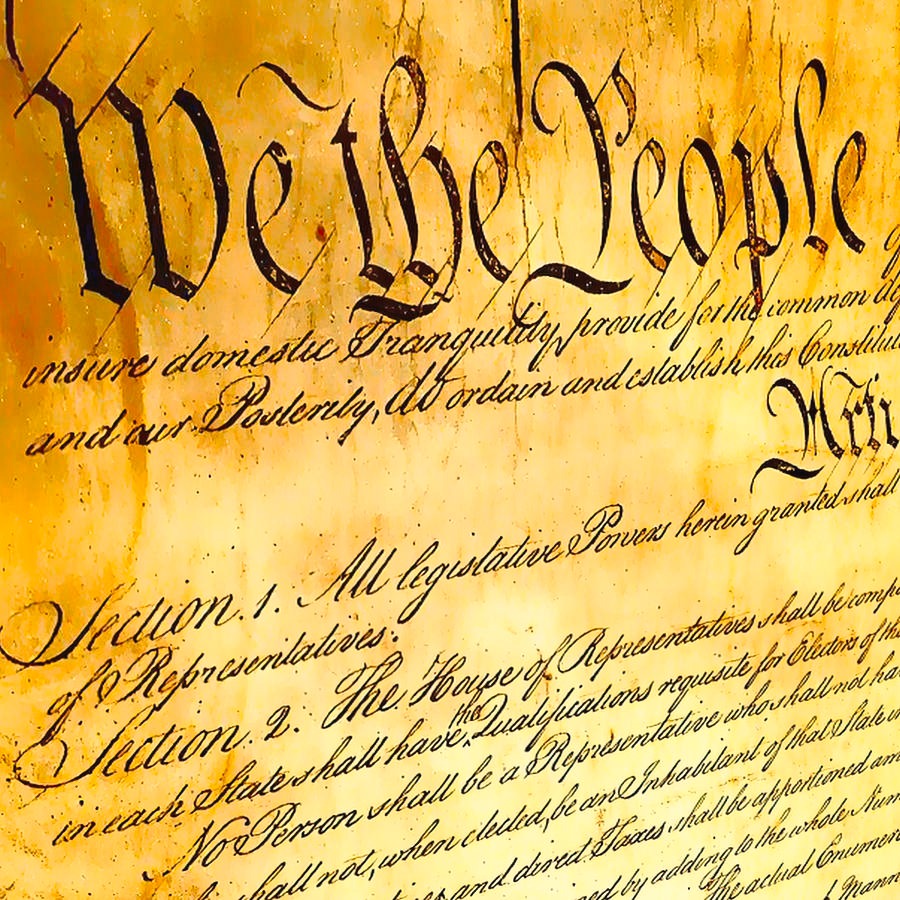 We the People
insure domestic Tranquility, provide for the common de
and our Posterity, do ordain and establish this Constitut
Arti
Section. 1. All legislative Powers herein granted shall
of Representatives.
Section. 2. The House of Representatives shall be comp
in each State shall have the Qualifications requisite for Electors of the
No Person shall be a Representative who shall not ha
shall not, when elected, be an Inhabitant of that State in
and direct Taxes shall be apportioned am
by adding to the whole Num
The actual Enumer
Mann